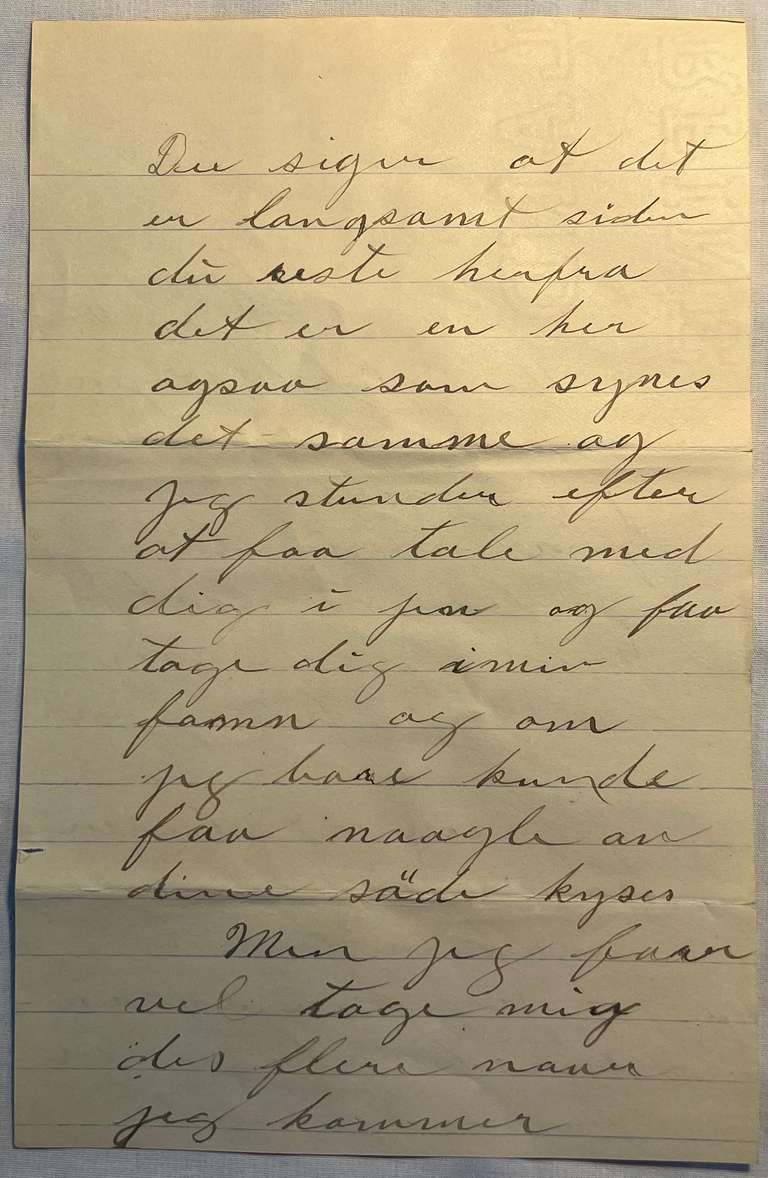 Du siger at det
er langsomt siden
du reste herfra
det er en her
ogsaa som synes
det samme og
jeg stunder efter
at faa tale med
dig i jen og faa
tage dig imin
famn og om
jeg bare kunde
faa naagle av
dine söde kyses
Men jeg faar
vel tage mig
des flere naar
jeg kommer